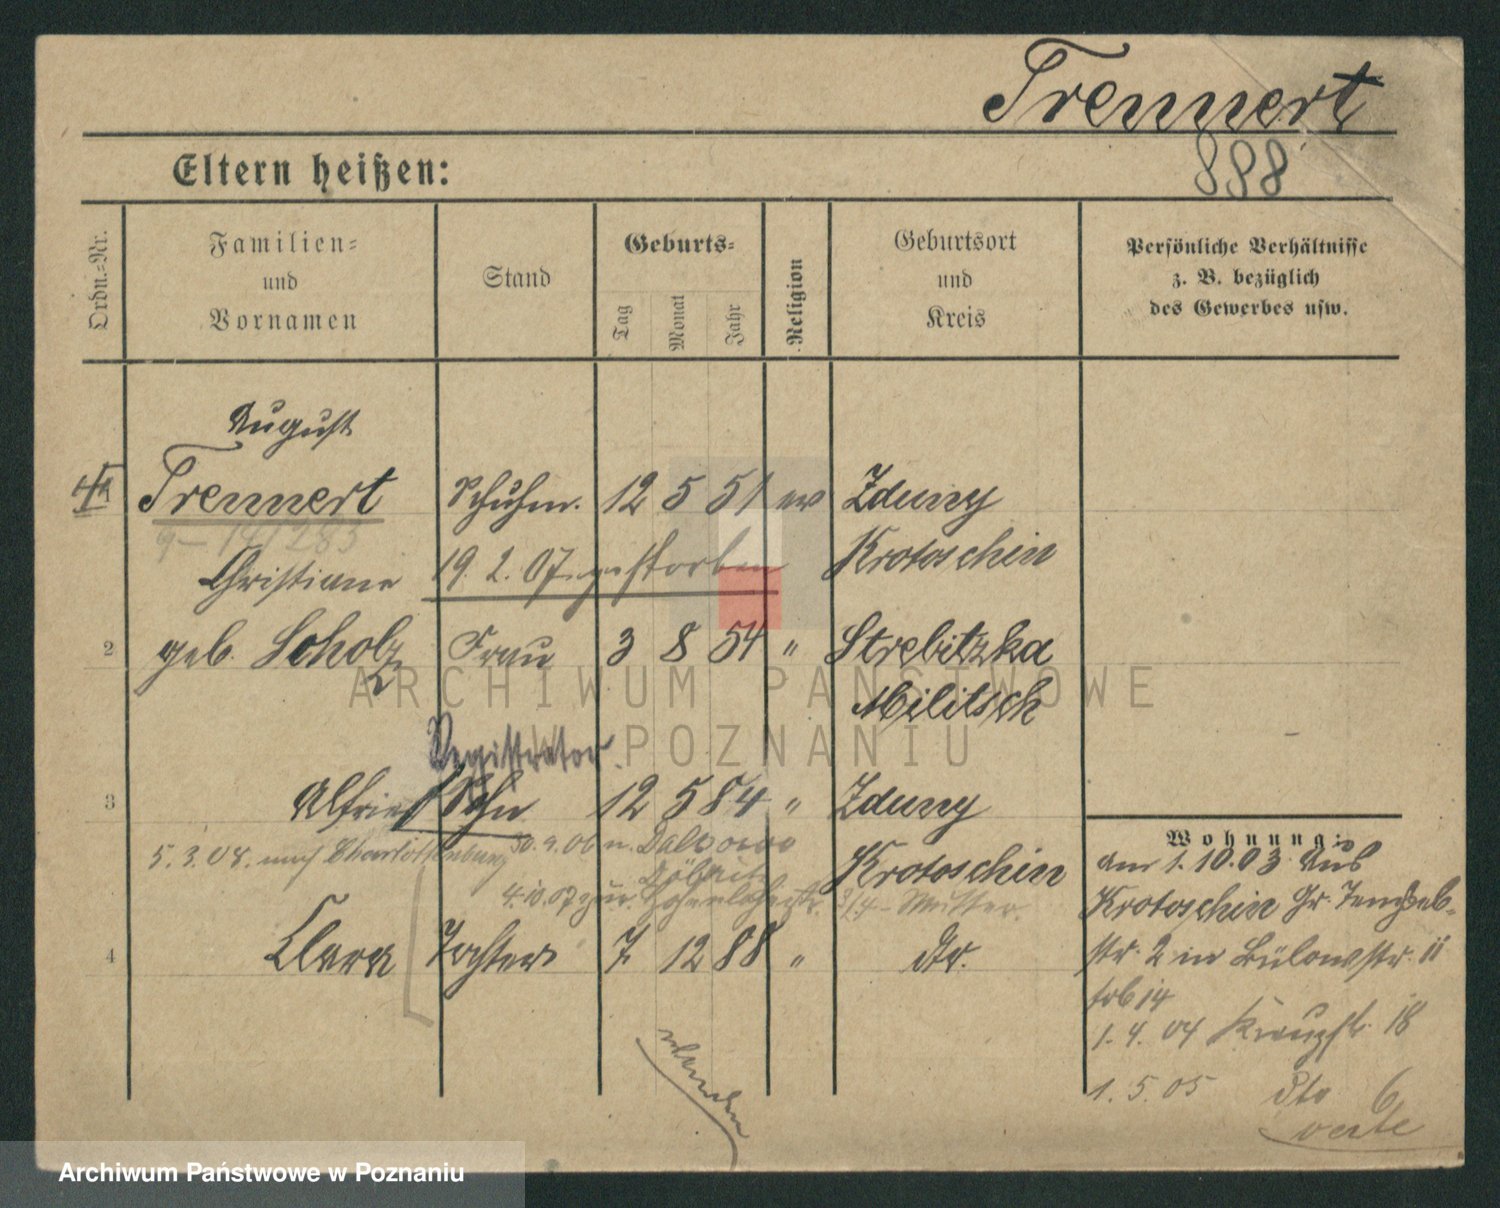 Trennert
888
Eltern heißen:
Ordn.-Nr.
Familien-
und
Vornamen
Stand
Geburts-
Tag
Monat
Jahr
Religion
Geburtsort
und
Kreis
Persönliche Verhältnisse
z. B. bezüglich
des Gewerbes usw.
August
Trennert Schuhm. 12 5 51 ev Zduny
Christiane 19. 2. 07 gestorben Krotoschin
2 geb. Scholz Frau 3 8 54 " Strebitzka
Militsch
Registrator
3 Alfried Sohn 12 5 84 " Zduny
5. 3. 08. nach Charlottenburg 30. 9. 06 n. Krotoschin
4. 10. 07 zur. Mutter.
4 Clara Tochter 7 12 88 " dto.
Wohnung:
am 1. 10. 03 Aus
Krotoschin Gr.
str. 2 in Bülowstr. 11
1. 4. 04 18
1. 5. 05 dto 6
verte
ARCHIWUM PAŃSTWOWE
W POZNANIU
Archiwum Państwowe w Poznaniu